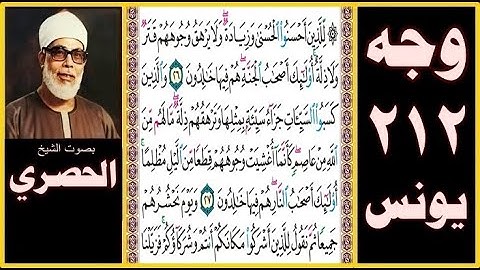 وجه
٢١٢
يونس
۞ لِّلَّذِينَ أَحْسَنُوا۟ ٱلْحُسْنَىٰ وَزِيَادَةٌ ۖ وَلَا يَرْهَقُ وُجُوهَهُمْ قَتَرٌ
وَلَا ذِلَّةٌ ۚ أُو۟لَٰٓئِكَ أَصْحَٰبُ ٱلْجَنَّةِ ۖ هُمْ فِيهَا خَٰلِدُونَ ٢٦ وَٱلَّذِينَ
كَسَبُوا۟ ٱلسَّيِّـَٔاتِ جَزَآءُ سَيِّئَةٍۭ بِمِثْلِهَا وَتَرْهَقُهُمْ ذِلَّةٌ ۖ مَّا لَهُم مِّنَ
ٱللَّهِ مِنْ عَاصِمٍ ۖ كَأَنَّمَآ أُغْشِيَتْ وُجُوهُهُمْ قِطَعًا مِّنَ ٱلَّيْلِ مُظْلِمًا ۚ
أُو۟لَٰٓئِكَ أَصْحَٰبُ ٱلنَّارِ ۖ هُمْ فِيهَا خَٰلِدُونَ ٢٧ وَيَوْمَ نَحْشُرُهُمْ
جَمِيعًا ثُمَّ نَقُولُ لِلَّذِينَ أَشْرَكُوا۟ مَكَانَكُمْ أَنتُمْ وَشُرَكَآؤُكُمْ ۚ فَزَيَّلْنَا
بصوت الشيخ
الحصري